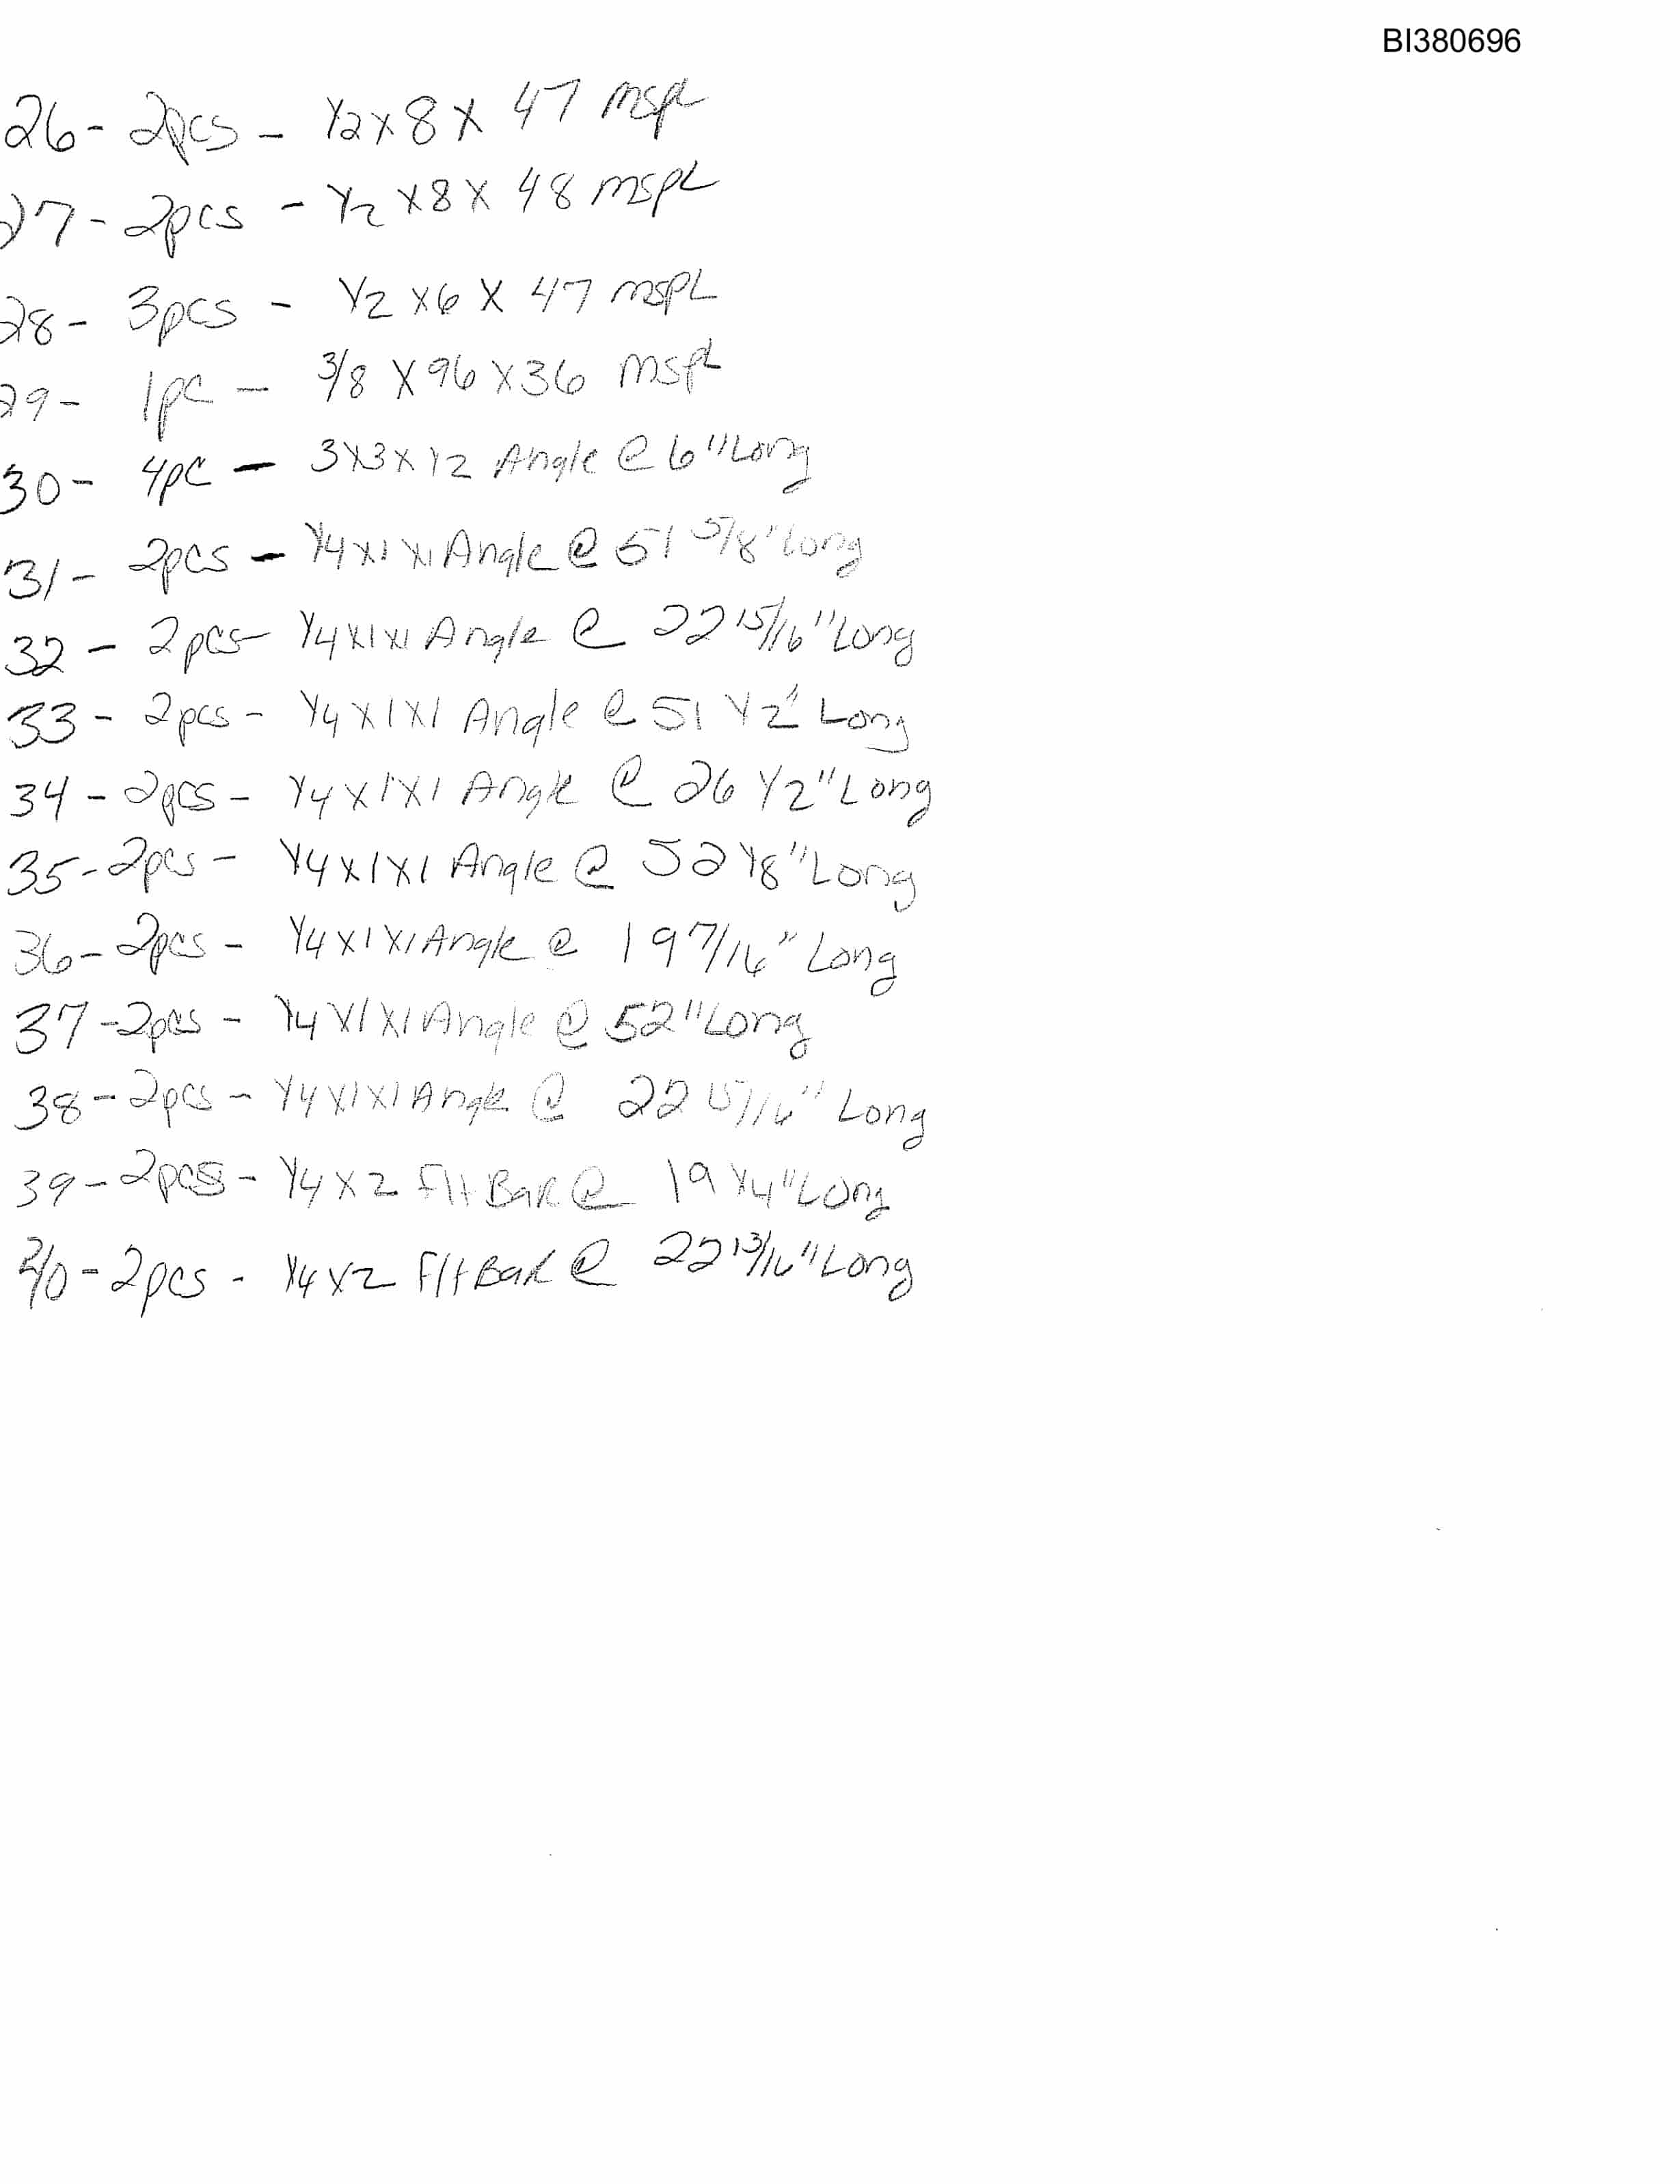 BI380696
26- 2pcs - 1/2 x 8 x 47 mspl
27- 2pcs - 1/2 x 8 x 48 mspl
28- 3pcs - 1/2 x 6 x 47 mspl
29- 1pc - 3/8 x 96 x 36 mspl
30- 4pc - 3x3x1/2 Angle @ 6" Long
31- 2pcs - 1/4x1x1 Angle @ 51 5/8" Long
32- 2pcs- 1/4x1x1 Angle @ 22 15/16" Long
33- 2pcs- 1/4x1x1 Angle @ 51 1/2" Long
34- 2pcs- 1/4x1x1 Angle @ 26 1/2" Long
35- 2pcs- 1/4x1x1 Angle @ 52 1/8" Long
36- 2pcs- 1/4x1x1 Angle @ 19 7/16" Long
37- 2pcs- 1/4x1x1 Angle @ 52" Long
38- 2pcs- 1/4x1x1 Angle @ 22 15/16" Long
39- 2pcs- 1/4x2 Flt Bar @ 19 1/4" Long
40- 2pcs- 1/4x2 Flt Bar @ 22 13/16" Long